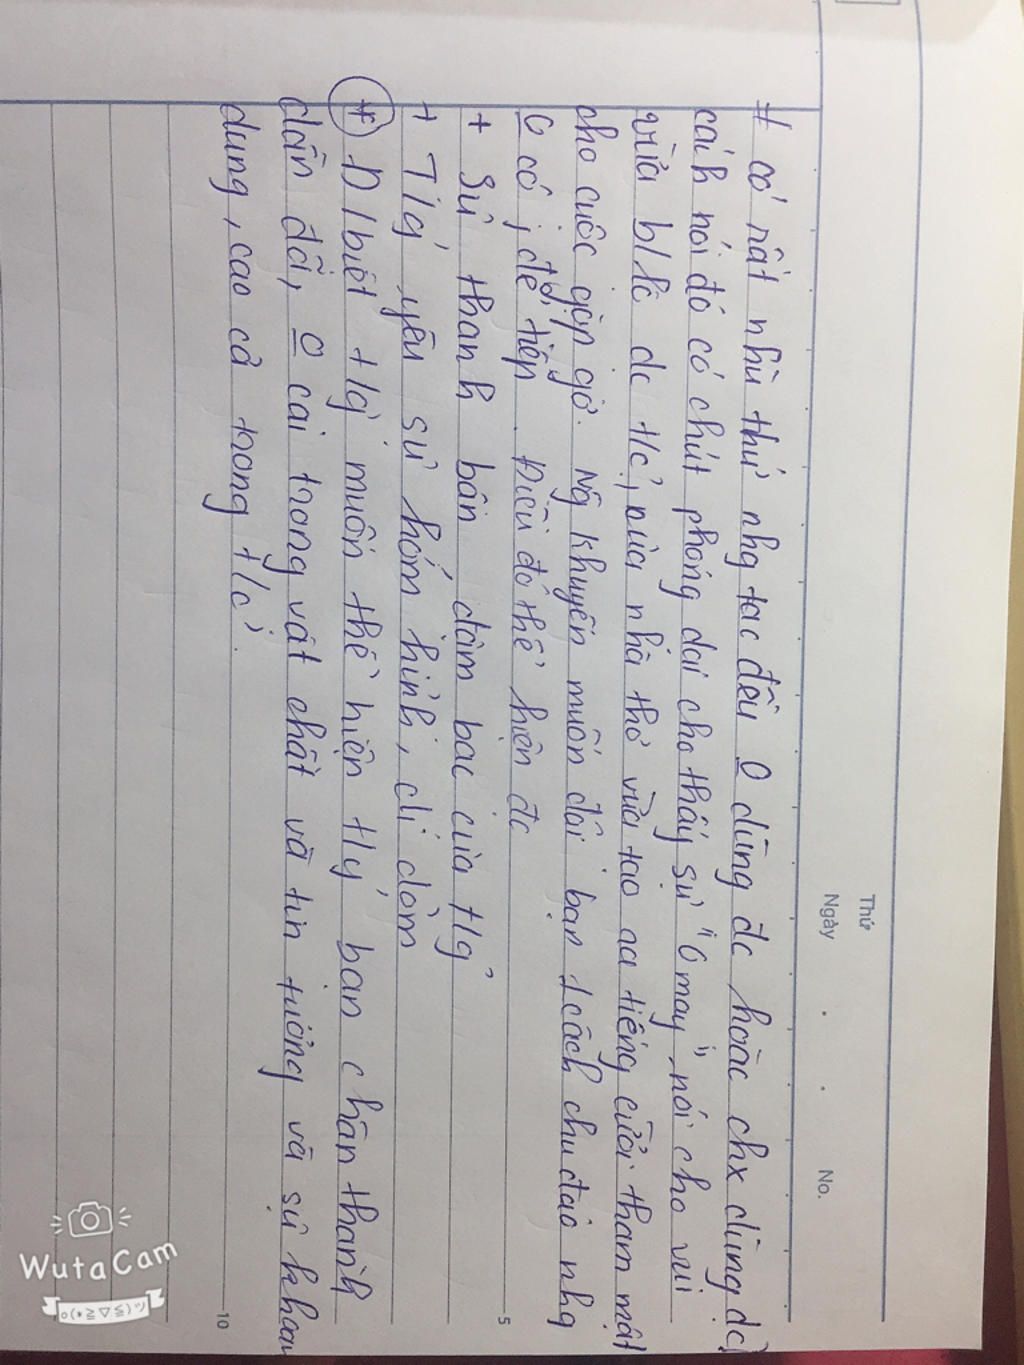 Thứ
Ngày
No.
# có rất nhìu thứ nhg tac đều 0 dùng đc hoặc chx dùng đc
cách nói đó có chút phóng đại cho thấy sự "0 may" nói cho vui
vừa b/lộ dc t/c của nhà thơ vừa tạo ra tiếng cười tham mật
cho cuộc gặp gỡ. Ng khuyến muốn đãi bạn 1 cách chu đáo nhg
0 có j để tiếp. Điều đó thể hiện đc
5
+ Sự thanh bần đạm bạc của t/g
+ T/g yêu sự hóm hỉnh, dí dỏm
* Đ/biệt t/g muốn thể hiện t/y bạn chân thành
dân dã, 0 cai trọng vật chất và tin tưởng và sự khoan
dung, cao cả trong t/c.
10
WutaCam